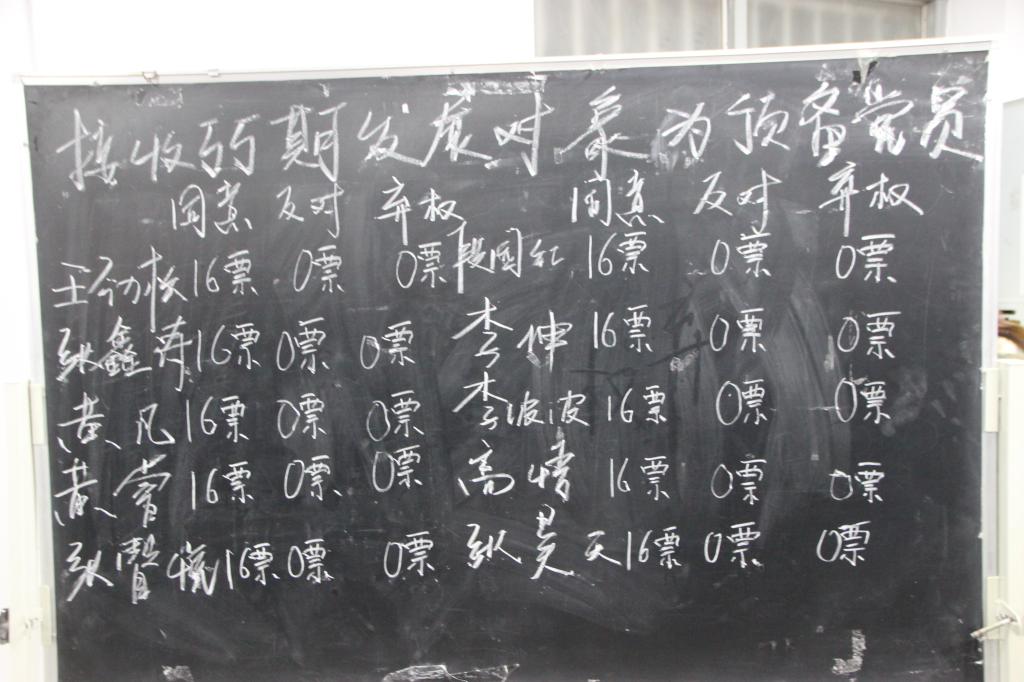 接收55期发展对象为预备党员
同意 反对 弃权 同意 反对 弃权
王 16票 0票 0票 段国红 16票 0票 0票
张鑫涛 16票 0票 0票 李伸 16票 0票 0票
黄凡 16票 0票 0票 李波波 16票 0票 0票
黄 16票 0票 0票 高 16票 0票 0票
张 16票 0票 0票 张昊天 16票 0票 0票